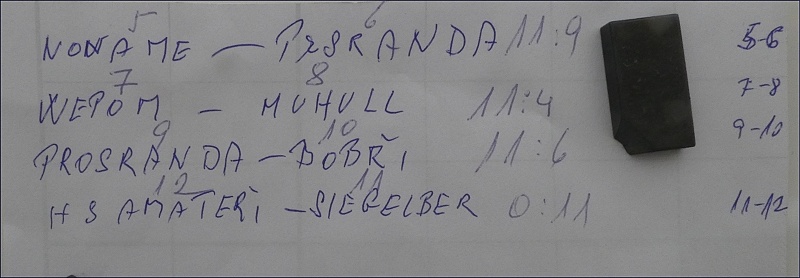 5 6
NONAME — PRSRANDA 11:9 5-6
7 8
WEPOM — MUHULL 11:4 7-8
9 10
PROSRANDA — BOBŘI 11:6 9-10
12 11
HS AMATEŘI — SIEGELBER 0:11 11-12